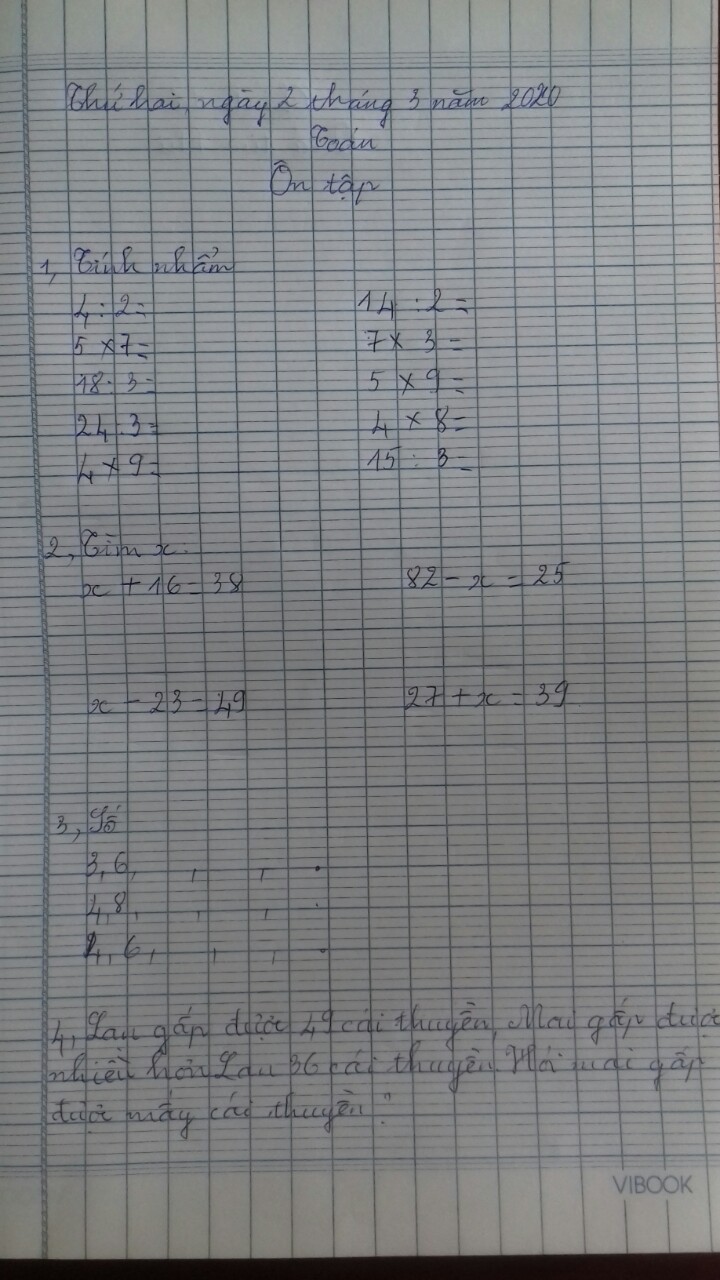 Thứ hai, ngày 2 tháng 3 năm 2020
Toán
Ôn tập
1, Tính nhẩm
4 : 2 = 14 : 2 =
5 × 7 = 7 × 3 =
18 : 3 = 5 × 9 =
24 : 3 = 4 × 8 =
4 × 9 = 15 : 3 =
2, Tìm x.
x + 16 = 38 82 - x = 25
x - 23 = 49 27 + x = 39
3, Số
3, 6, , , .
4, 8, , , .
4, 6, , , .
4, Lan gấp được 49 cái thuyền, Mai gấp được
nhiều hơn Lan 36 cái thuyền. Hỏi mai gấp
được mấy cái thuyền?
VIBOOK